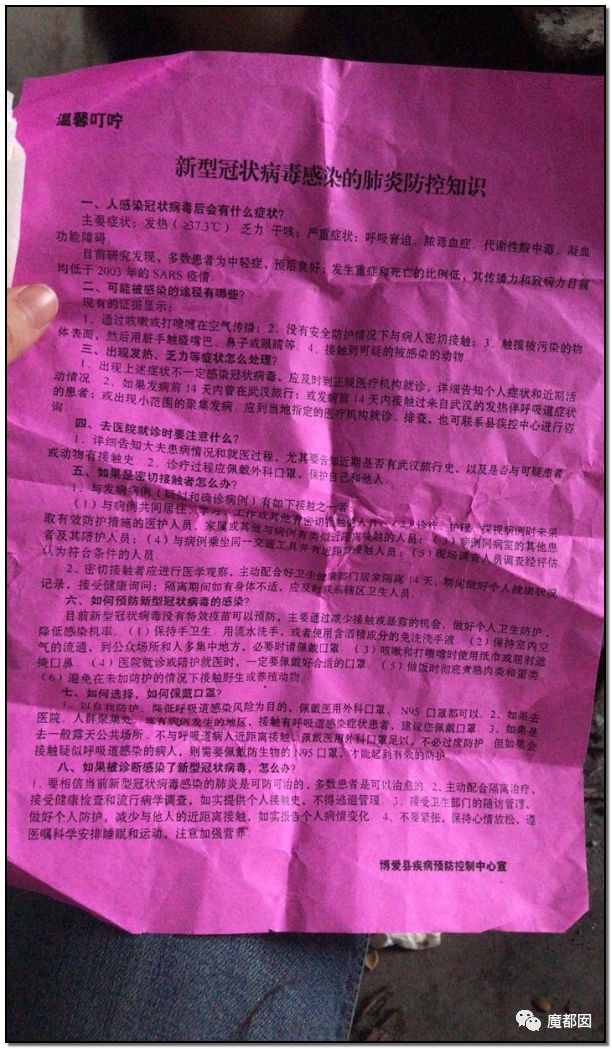 温馨叮咛
新型冠状病毒感染的肺炎防控知识
一、人感染冠状病毒后会有什么症状?
主要症状:发热(≥37.3℃) 乏力 干咳;严重症状:呼吸窘迫、脓毒血症、代谢性酸中毒、凝血
功能障碍
目前研究发现,多数患者为中轻症,预后良好;发生重症和死亡的比例低,其传播力和致病力目前
均低于 2003 年的 SARS 疫情
二、可能被感染的途径有哪些?
现有的证据显示:
1、通过咳嗽或打喷嚏在空气传播;2、没有安全防护情况下与病人密切接触;3、触摸被污染的物
体表面,然后用脏手触碰嘴巴、鼻子或眼睛等 4、接触到可疑的被感染的动物
三、出现发热、乏力等症状怎么处理?
1、出现上述症状不一定感染冠状病毒,应及时到正规医疗机构就诊,详细告知个人症状和近期活
动情况 2、如果发病前 14 天内曾在武汉旅行;或发病前 14 天内接触过来自武汉的发热伴呼吸道症状
的患者;或出现小范围的聚集发病,应到当地指定的医疗机构就诊、排查,也可联系县疾控中心进行咨
询
四、去医院就诊时要注意什么?
1、详细告知大夫患病情况和就医过程,尤其要告知近期是否有武汉旅行史,以及是否与可疑患者
或动物有接触史 2、诊疗过程应佩戴外科口罩,保护自己和他人
五、如果是密切接触者怎么办?
1、与发病病例(疑似和确诊病例)有如下接触之一者:
(1)与病例共同居住、学习、工作或其他有密切接触的人员;(2)诊疗、护理、探视病例时未采
取有效防护措施的医护人员、家属或其他与病例有类似近距离接触的人员;(3)病例同病室的其他患
者及其陪护人员;(4)与病例乘坐同一交通工具并有近距离接触人员;(5)现场调查人员调查经评估
认为符合条件的人员
2、密切接触者应进行医学观察,主动配合好卫生健康部门居家隔离 14 天,期间做好个人健康状况
记录,接受健康询问;隔离期间如有身体不适,应及时联系辖区卫生人员
六、如何预防新型冠状病毒的感染?
目前新型冠状病毒没有特效疫苗可以预防,主要通过减少接触或暴露的机会,做好个人卫生防护,
降低感染机率。(1)保持手卫生 用流水洗手,或者使用含酒精成分的免洗洗手液 (2)保持室内空
气的流通,到公众场所和人多集中地方,必要时请佩戴口罩 (3)咳嗽和打喷嚏时使用纸巾或屈肘遮
掩口鼻 (4)医院就诊或陪护就医时,一定要佩戴好合适的口罩 (5)做饭时彻底煮熟肉类和蛋类
(6)避免在未加防护的情况下接触野生或养殖动物
七、如何选择,如何佩戴口罩?
1、以自我防护、降低呼吸道感染风险为目的,佩戴医用外科口罩、N95 口罩都可以 2、如果去
医院、人群聚集处、或有病例发生的地区,接触有呼吸道感染症状患者,建议您佩戴口罩 3、如果是
去一般露天公共场所、不与呼吸道病人近距离接触,佩戴医用外科口罩足以,不必过度防护 但如果会
接触疑似呼吸道感染的病人,则需要佩戴防生物的 N95 口罩,才能起到有效的防护
八、如果被诊断感染了新型冠状病毒,怎么办?
1、要相信当前新型冠状病毒感染的肺炎是可防可治的,多数患者是可以治愈的 2、主动配合隔离治疗,
接受健康检查和流行病学调查,如实提供个人接触史,不得逃避管理 3、接受卫生部门的随访管理、
做好个人防护,减少与他人的近距离接触,如实报告个人病情变化 4、不要紧张,保持心情放松,遵
医嘱科学安排睡眠和运动,注意加强营养
博爱县疾病预防控制中心宣
魔都囡